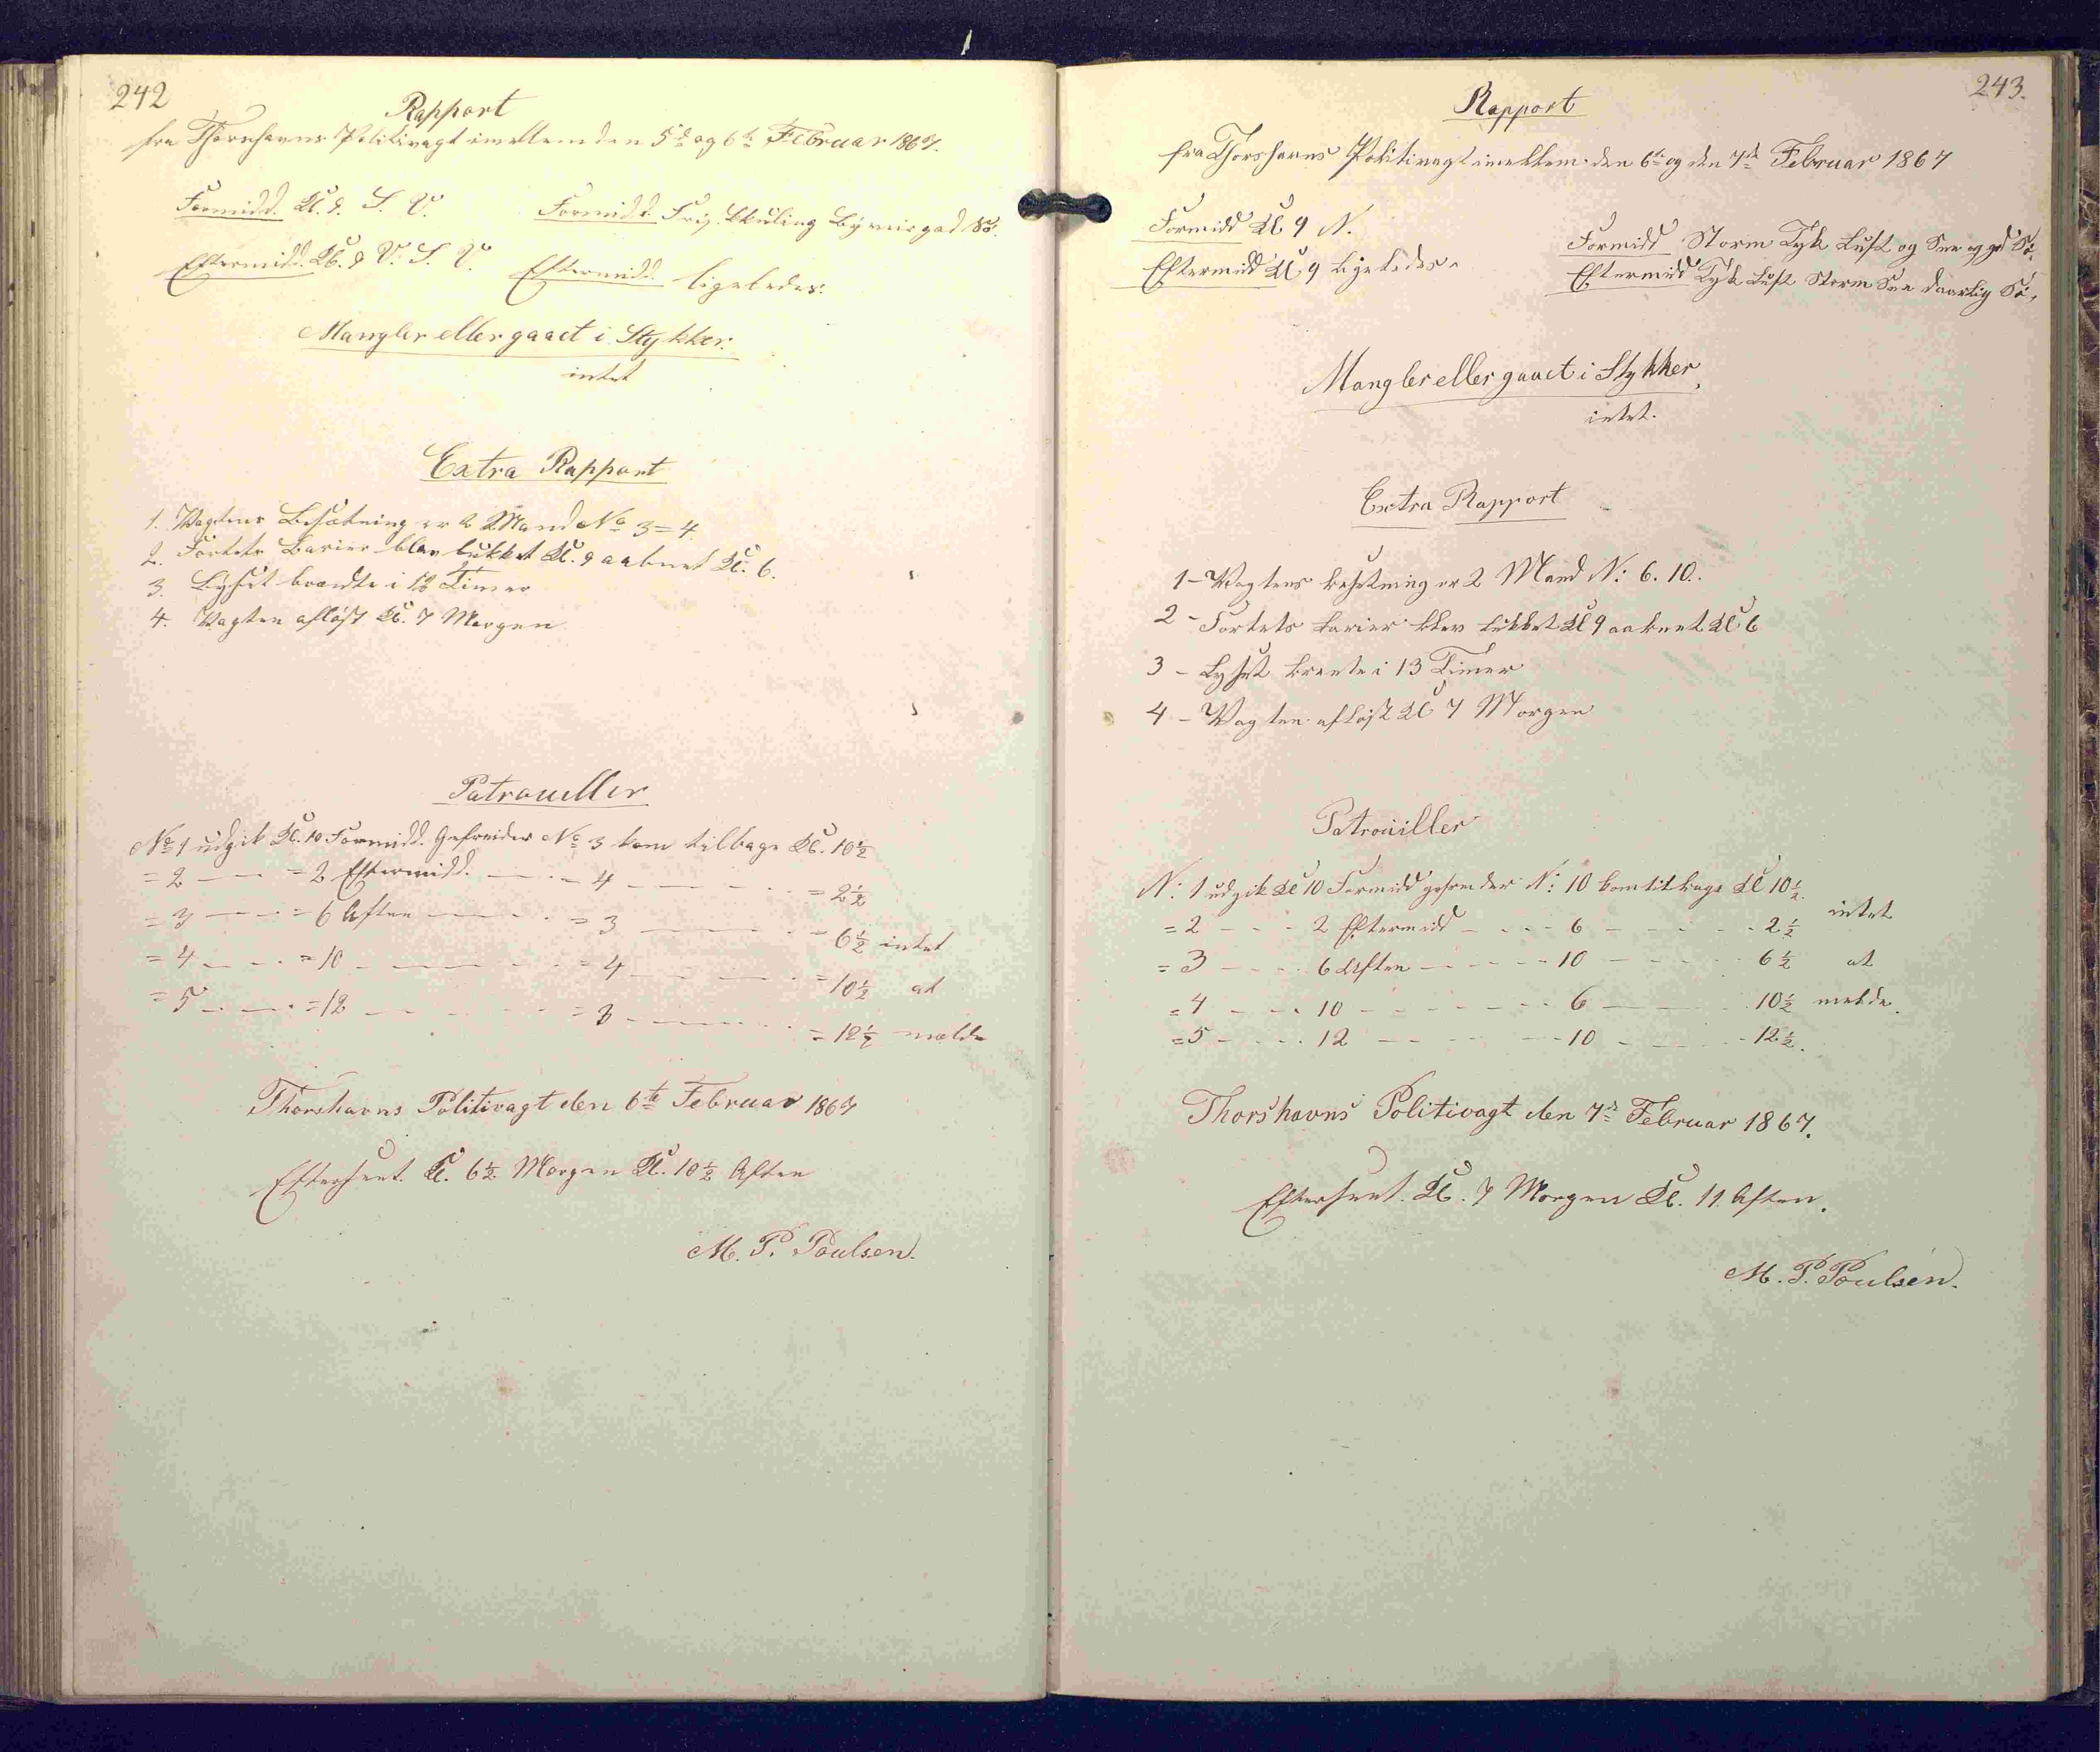 242
Rapport
fra Thorshavns Politivagt imellem den 5te og 6te Februar 1867.
Formidd. Kl. 9. S. V. Formidd. Frisk Kuling Byveir god Sö.
Eftermidd. Kl. 9 V. S. V. Eftermidd. ligeledes.
Mangler eller gaaet i Stykker.
intet
Extra Rapport
1. Vagtens Besætning er 2 Mand No 3=4
2. Fortets Barier blev lukket Kl. 9 aabnet Kl. 6.
3. Lyset brændte i Timer
4. Vagten afløst Kl. 7 Morgen
Patrouller
No 1 udgik Kl. 10 Formidd. Gefreider No 3 kom tilbage Kl. 10½
=2 — =2 Eftermidd. — =4 — =2½
=3 — =6 Aften — =3 — =6½ intet
=4 — =10 — =4 — =10½ at
=5 — =12 — =3 — =12½ melde
Thorshavns Politivagt den 6te Februar 1867
Efterseet. Kl. 6½ Morgen Kl. 10½ Aften
M. P. Poulsen.
243.
Rapport
fra Thorshavns Politivagt imellem den 6te og den 7de Februar 1867
Formidd Kl 9 N. Formidd Storm Tyk Luft og Snee og god Sö.
Eftermidd Kl. 9 ligeledes. Eftermidd Tyk Luft Storm Snee daarlig Sö.
Mangler eller gaaet i Stykker,
intet.
Extra Rapport
1 - Vagtens besetning er 2 Mand N: 6. 10.
2 - Fortets barier blev lukket Kl 9 aabnet Kl 6
3 - Lyset brente i 13 Timer
4 - Vagten afløst Kl 7 Morgen
Patrouiller
N: 1 udgik Kl 10 Formidd gefreider N: 10 kom tilbage Kl 10½.
=2 - - - 2 Eftermidd - - - 6 - - - 2½ intet
=3 - - - 6 Aften - - - 10 - - - 6½ at
=4 - - - 10 - - - 6 - - - 10½ melde.
=5 - - - 12 - - - 10 - - - 12½.
Thorshavns Politivagt den 7de Februar 1867.
Efterseet. Kl. 7 Morgen Kl. 11. Aften.
M. P. Poulsen.